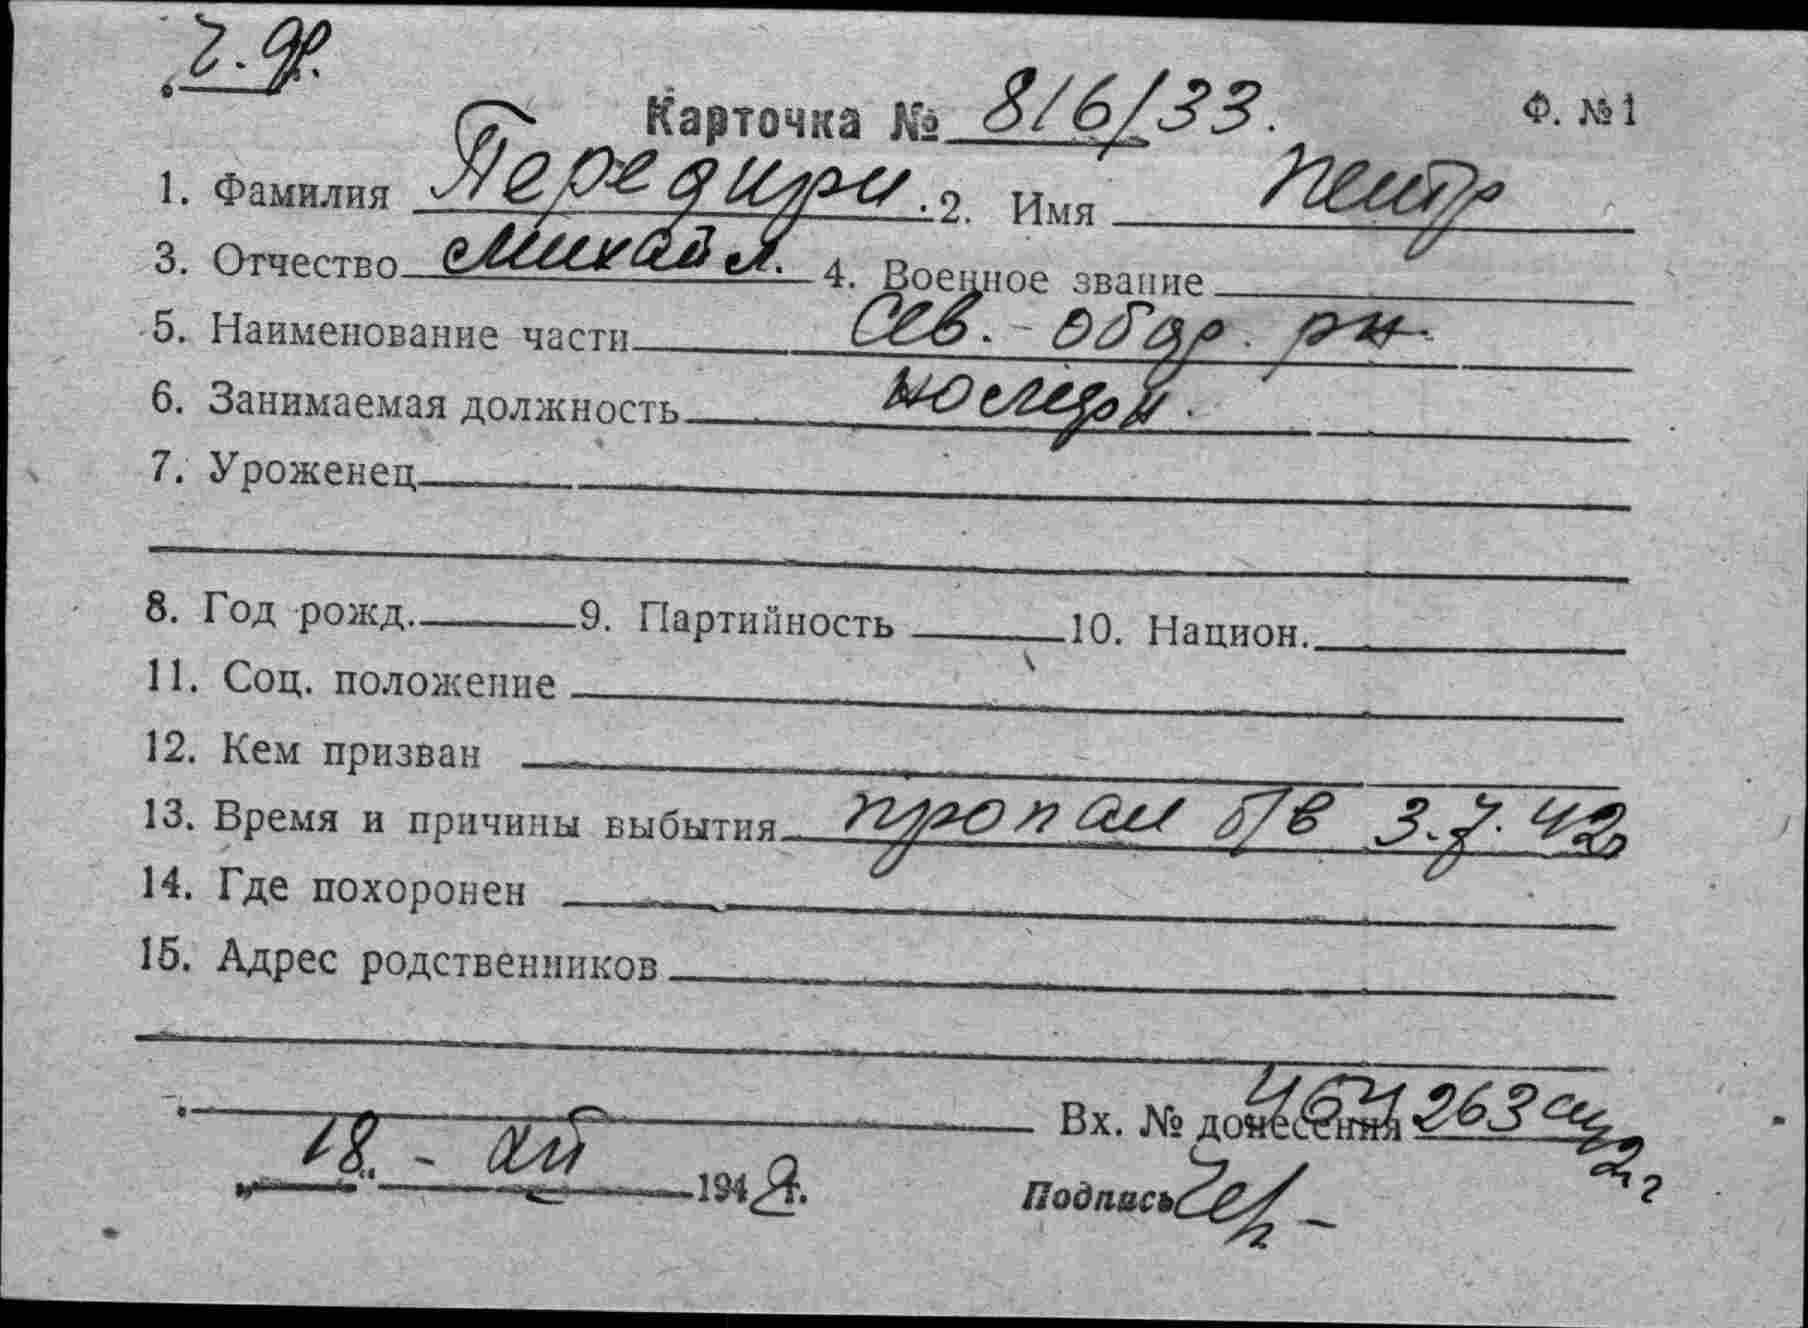 Карточка № 816/33. Ф. №1
1. Фамилия Передири. 2. Имя Петр
3. Отчество Михайл. 4. Военное звание
5. Наименование части Сев. - обор. рн
6. Занимаемая должность
7. Уроженец
8. Год рожд. 9. Партийность 10. Национ.
11. Соц. положение
12. Кем призван
13. Время и причины выбытия пропал б/в 3.7.42
14. Где похоронен
15. Адрес родственников
Вх. № донесения 263
18. - 194
Подпись